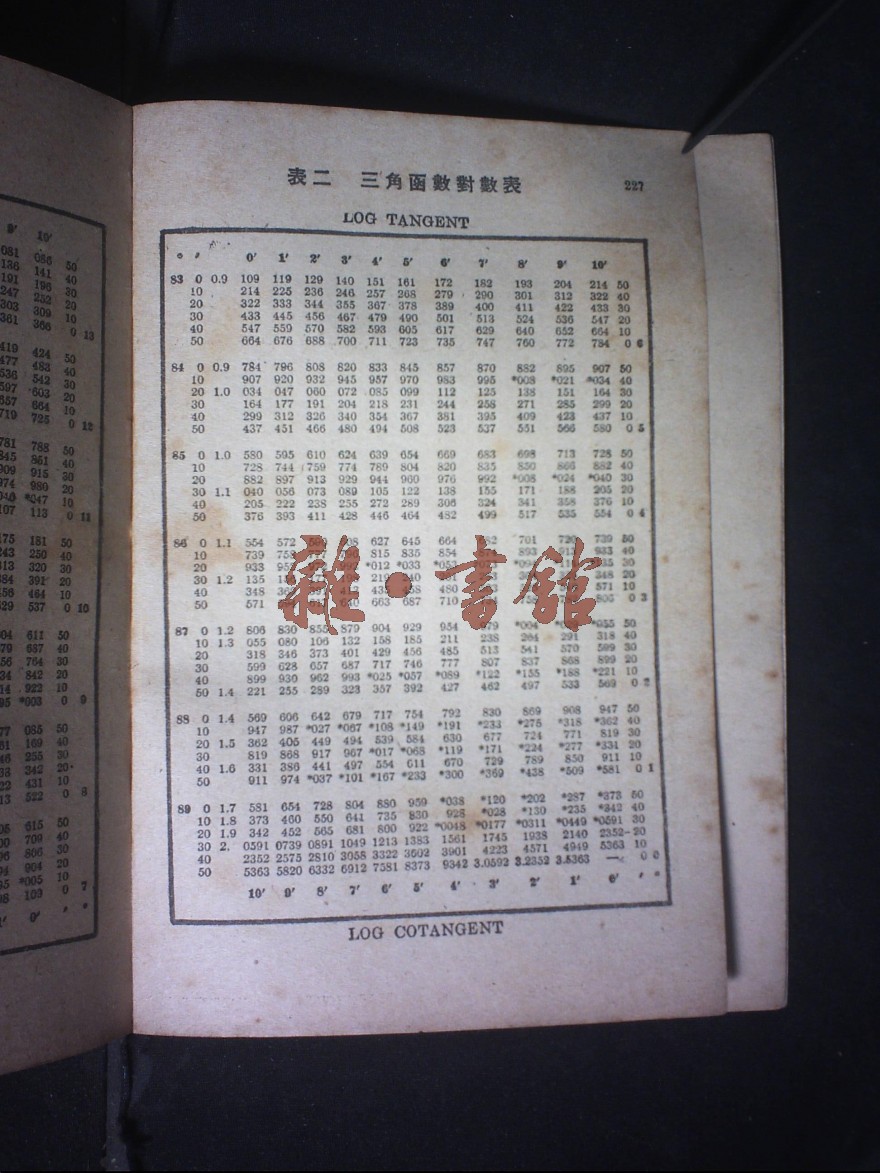 9′ 10′
081 086 50
136 141 40
191 196 30
247 252 20
303 309 10
361 366 0 13
419 424 50
477 483 40
536 542 30
597 603 20
657 664 10
719 725 0 12
781 788 50
845 851 40
909 915 30
974 980 20
*047 10
107 113 0 11
175 181 50
243 250 40
313 320 30
384 391 20
456 464 10
529 537 0 10
604 611 50
679 687 40
756 764 30
834 842 20
914 922 10
*003 0 9
077 085 50
161 169 40
246 255 30
342 20
431 10
522 0 8
615 50
709 40
806 30
904 20
*005 10
103 0 7
0′ ′ °
表二 三角函數對數表 227
LOG TANGENT
° ′ 0′ 1′ 2′ 3′ 4′ 5′ 6′ 7′ 8′ 9′ 10′
83 0 0.9 109 119 129 140 151 161 172 182 193 204 214 50
10 214 225 236 246 257 268 279 290 301 312 322 40
20 322 333 344 355 367 378 389 400 411 422 433 30
30 433 445 456 467 479 490 501 513 524 536 547 20
40 547 559 570 582 593 605 617 629 640 652 664 10
50 664 676 688 700 711 723 735 747 760 772 784 0 6
84 0 0.9 784 796 808 820 833 845 857 870 882 895 907 50
10 907 920 932 945 957 970 983 995 *008 *021 *034 40
20 1.0 034 047 060 072 085 099 112 125 138 151 164 30
30 164 177 191 204 218 231 244 258 271 285 299 20
40 299 312 326 340 354 367 381 395 409 423 437 10
50 437 451 466 480 494 508 523 537 551 566 580 0 5
85 0 1.0 580 595 610 624 639 654 669 683 698 713 728 50
10 728 744 759 774 789 804 820 835 850 866 882 40
20 882 897 913 929 944 960 976 992 *008 *024 *040 30
30 1.1 040 056 073 089 105 122 138 155 171 188 205 20
40 205 222 238 255 272 289 306 324 341 358 376 10
50 376 393 411 428 446 464 482 499 517 535 554 0 4
86 0 1.1 554 572 627 645 664 701 720 739 50
10 739 815 835 854 893 933 40
20 933 *012 *033 30
30 1.2 135 20
40 348 480 571 10
50 571 663 687 710 0 3
87 0 1.2 806 830 855 879 904 929 954 50
10 1.3 055 080 106 132 158 185 211 238 264 291 318 40
20 318 346 373 401 429 456 485 513 541 570 599 30
30 599 628 657 687 717 746 777 807 837 868 899 20
40 899 930 962 993 *025 *057 *089 *122 *155 *188 *221 10
50 1.4 221 255 289 323 357 392 427 462 497 533 569 0 2
88 0 1.4 569 606 642 679 717 754 792 830 869 908 947 50
10 947 987 *027 *067 *108 *149 *191 *233 *275 *318 *362 40
20 1.5 362 405 449 494 539 584 630 677 724 771 819 30
30 819 868 917 967 *017 *068 *119 *171 *224 *277 *331 20
40 1.6 331 386 441 497 554 611 670 729 789 850 911 10
50 911 974 *037 *101 *167 *233 *300 *369 *438 *509 *581 0 1
89 0 1.7 581 654 728 804 880 959 *038 *120 *202 *287 *373 50
10 1.8 373 460 550 641 735 830 928 *028 *130 *235 *342 40
20 1.9 342 452 565 681 800 922 *0048 *0177 *0311 *0449 *0591 30
30 2. 0591 0739 0891 1049 1213 1383 1561 1745 1938 2140 2352 20
40 2352 2575 2810 3058 3322 3602 3901 4223 4571 4949 5363 10
50 5363 5820 6332 6912 7581 8373 9342 3.0592 3.2352 3.5363 — 0 0
10′ 9′ 8′ 7′ 6′ 5′ 4′ 3′ 2′ 1′ 0′ ′ °
LOG COTANGENT
雜·書館